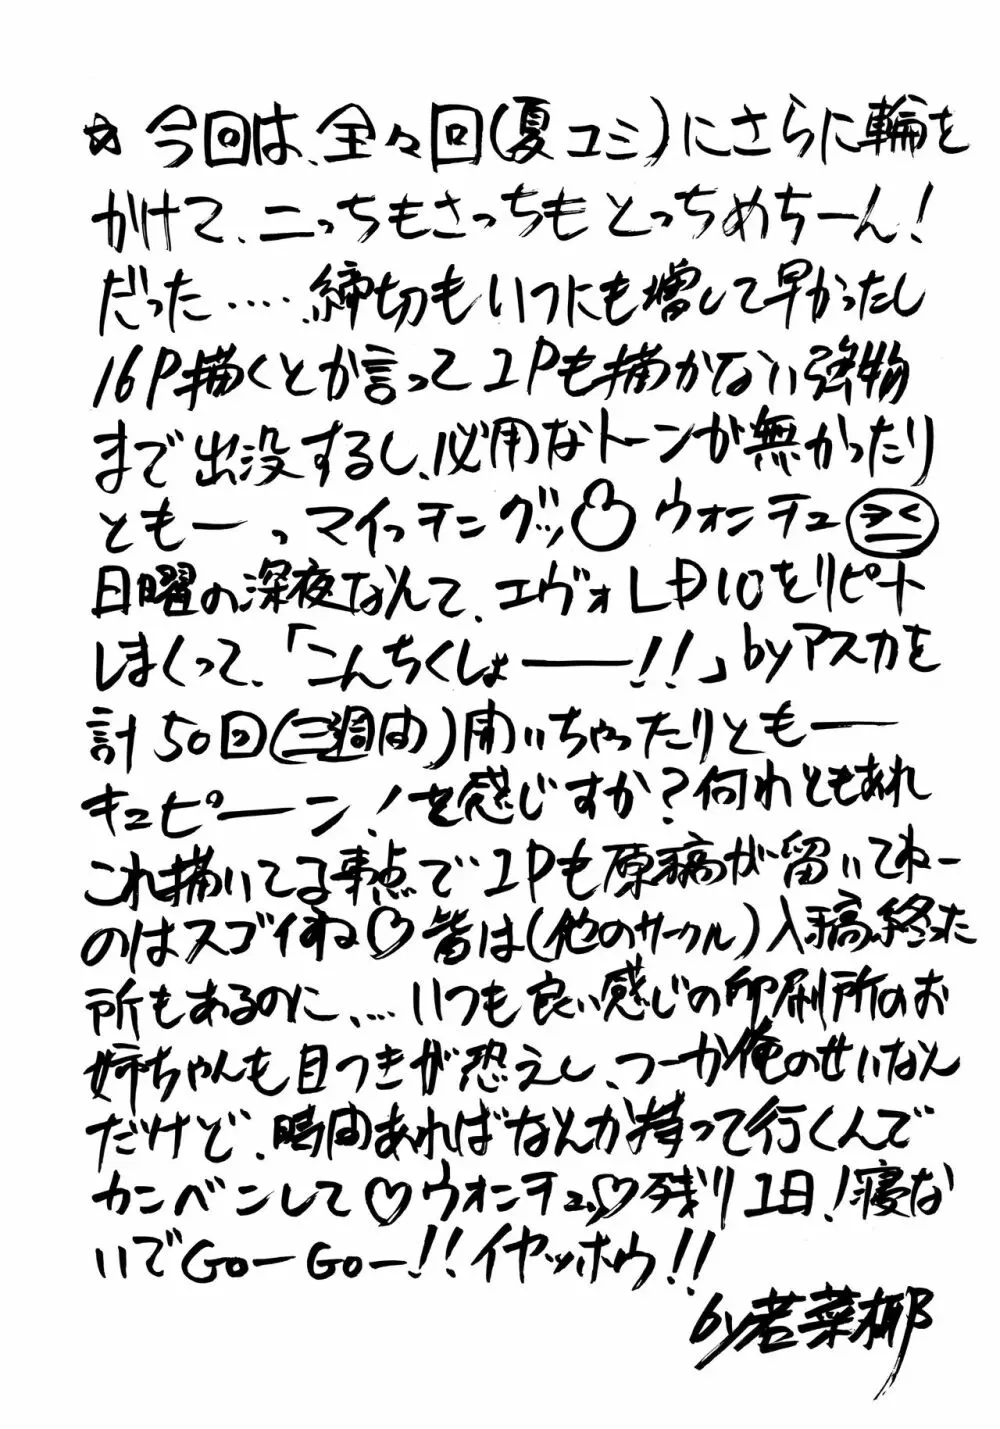 ☆今回は、全々回(夏コミ)にさらに輪を
かけて、二っちもさっちもとっちめちーん!
だった‥‥締切もいつにも増して早かったし
16P描くとか言って1Pも描かない強物
まで出没するし、必用なトーンが無かったり
ともーっマイっチングッ♡ウォンチュ
日曜の深夜なんて、エヴァLD10をリピート
しまくって、「こんちくしょ――!!」byアスカを
計50回(三週間)聞いちゃったりともー
キュピーン!を感じすか?何れともあれ
これ描いてる事点で1Pも原稿が留いてねー
のはスゴイすね♡皆は(他のサークル)入稿終った
所もあるのに、…いつも良い感じの印刷所のお
姉ちゃんも目つきが恐えし、つーか俺のせいなん
だけど、時間あればなんか持って行くんで
カンベンして♡ウォンチュ♡残り1日!寝な
いでGoーGoー!!イヤッホウ!!
by若菜椰